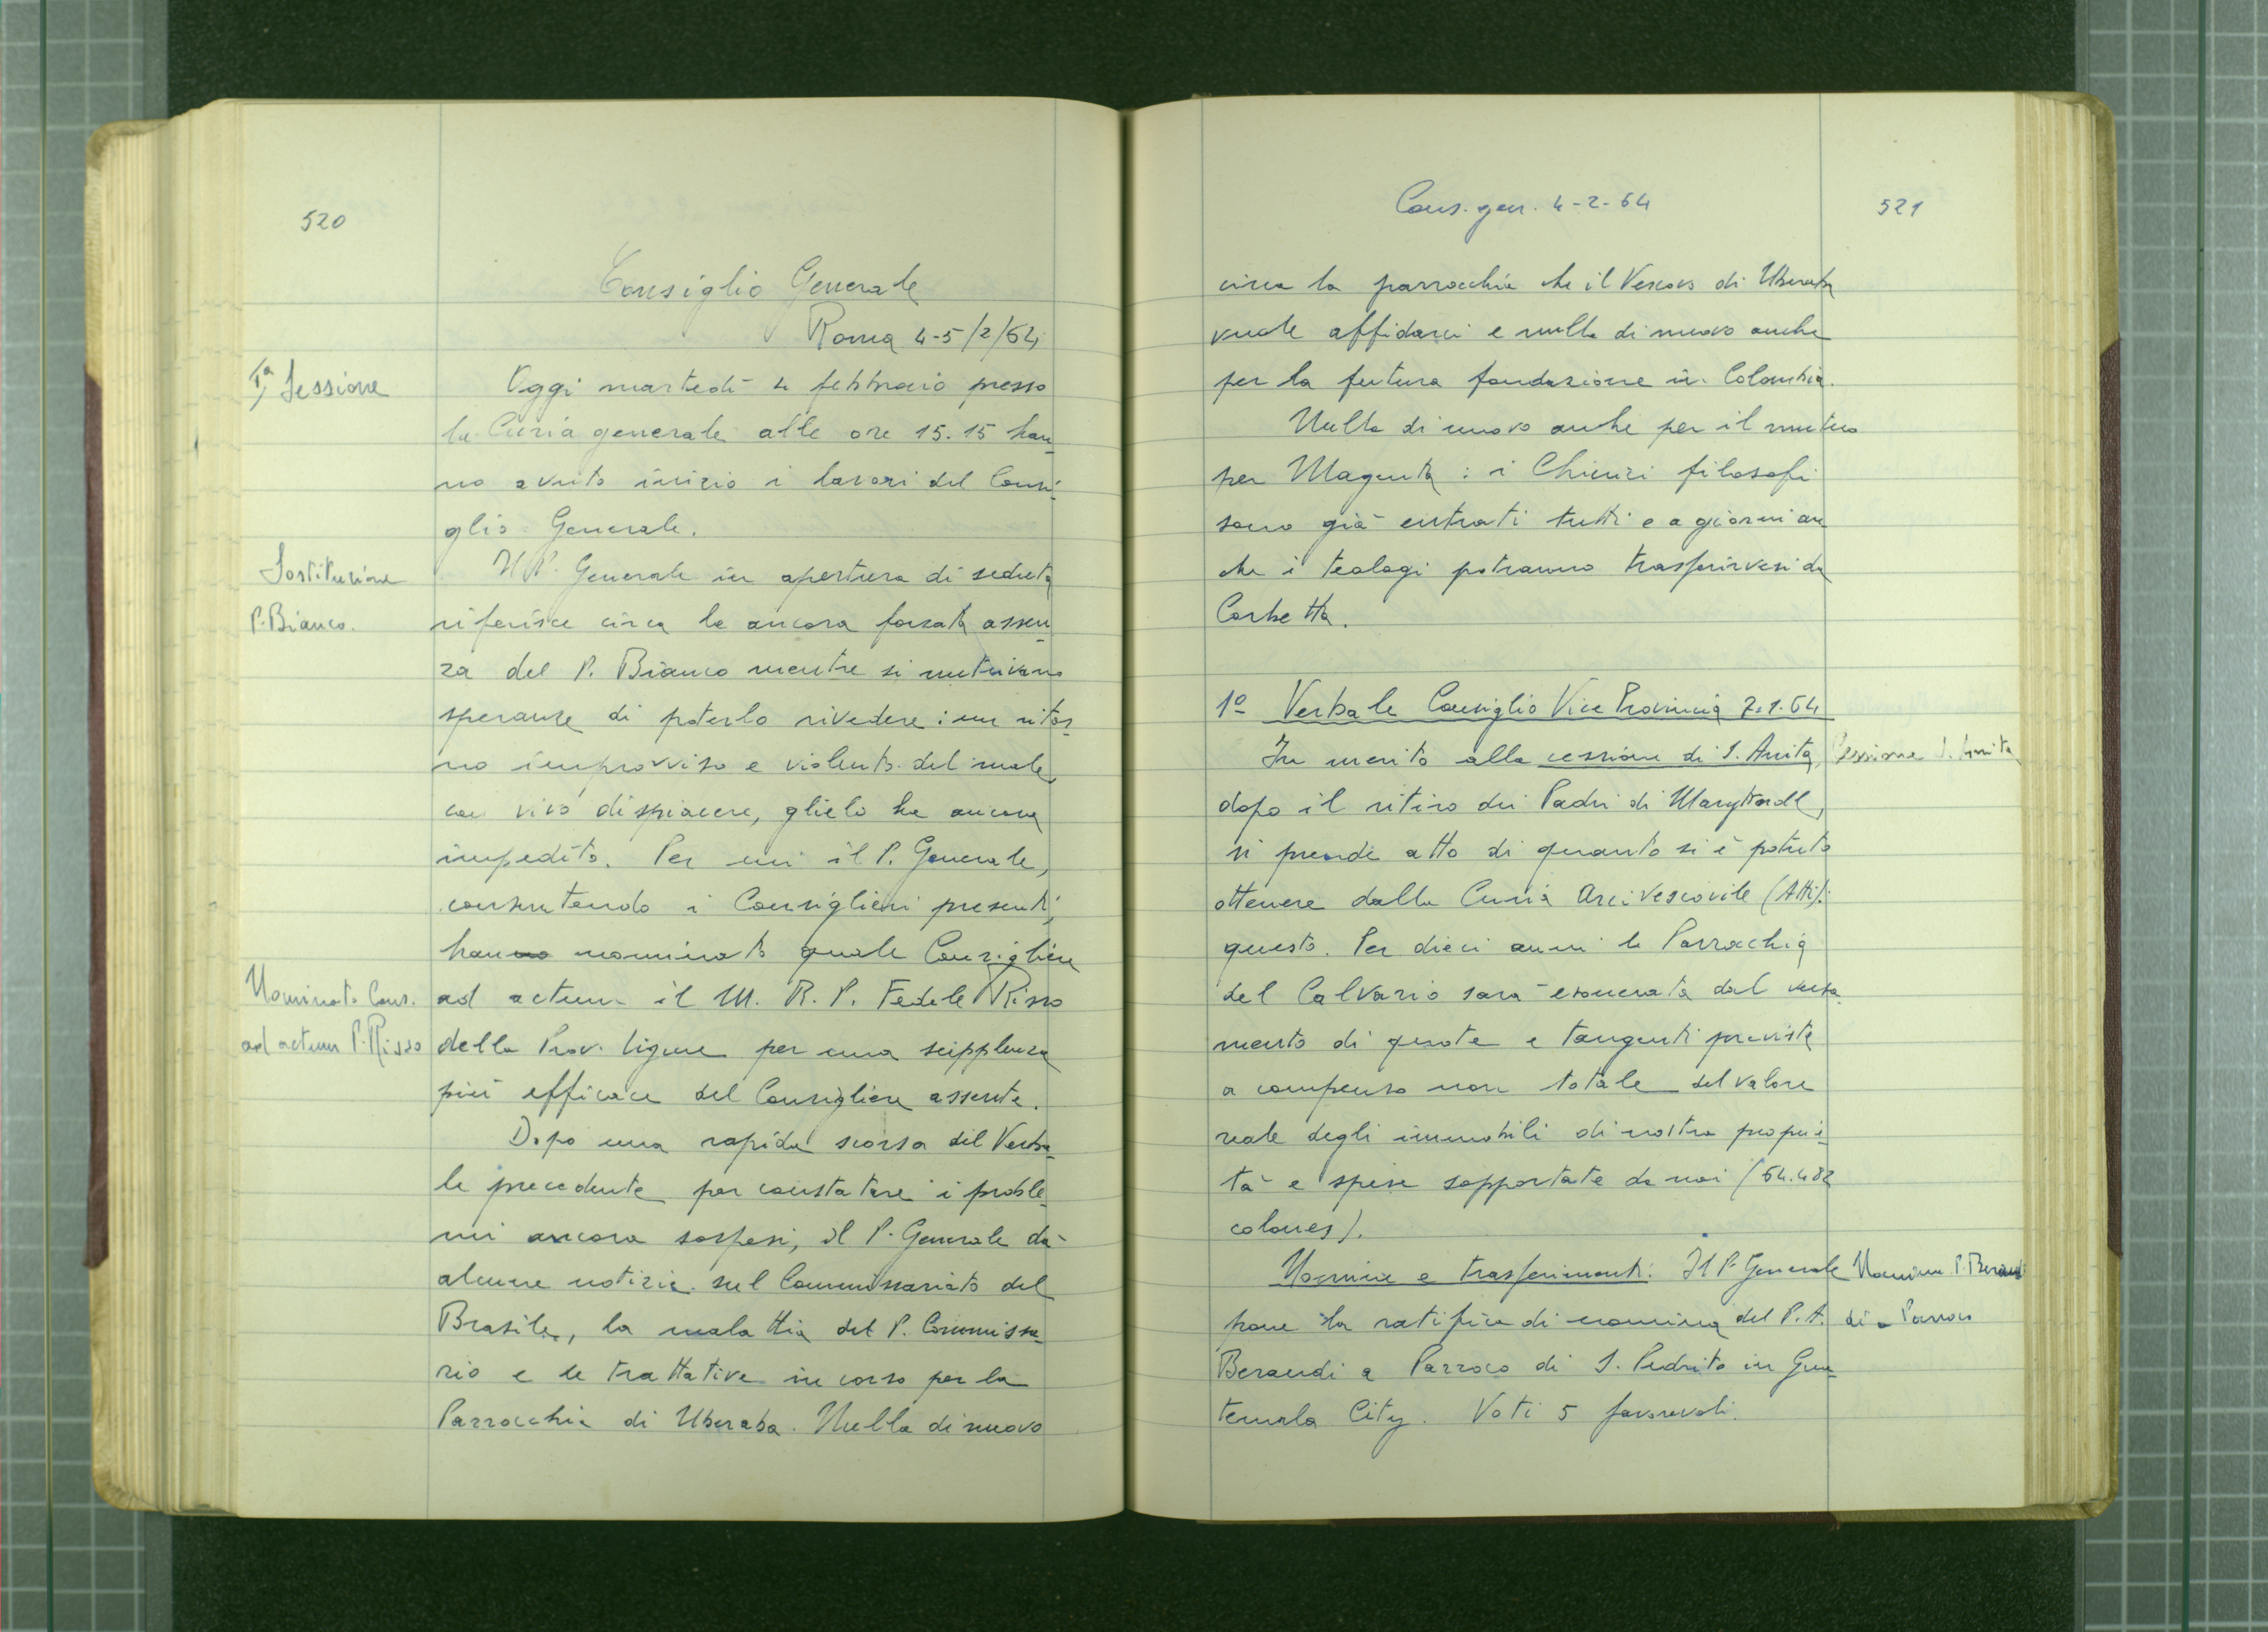 520
Consiglio Generale
Roma 4-5/2/64
Iª Sessione
Oggi martedì 4 febbraio presso
la Curia generale alle ore 15.15 han-
no avuto inizio i lavori del Consi-
glio Generale.
Sostituzione
P. Bianco.
Il P. Generale in apertura di seduta
riferisce circa la ancora forzata assen-
za del P. Bianco mentre si nutrivano
speranze di poterlo rivedere: un ritor-
no improvviso e violento del male,
con vivo dispiacere, glielo ha ancora
impedito. Per cui il P. Generale,
consultando i Consiglieri presenti,
hanno nominato quale Consigliere
Nominato Cons.
ad actum P. Risso
ad actum il M. R. P. Fedele Risso
della Prov. Ligure per una supplenza
più efficace del Consigliere assente.
Dopo una rapida scorsa del Verba-
le precedente per constatare i proble-
mi ancora sospesi, il P. Generale dà
alcune notizie sul Commissariato del
Brasile, la malattia del P. Commissa-
rio e le trattative in corso per la
Parrocchia di Uberaba. Nulla di nuovo
Cons. gen. 4-2-64
521
circa la parrocchia che il Vescovo di Uberaba
vuole affidarci e nulla di nuovo anche
per la futura fondazione in Colombia.
Nulla di nuovo anche per il mutuo
per Magenta: i Chierici filosofi
sono già entrati tutti e a giorni an
che i teologi potranno trasferirvesi da
Corbetta.
1º Verbale Consiglio Vice Provincia 7.1.64
In merito alla cessione di S. Anita,
Cessione S. Anita
dopo il ritiro dei Padri di Maryknoll,
si prende atto di quanto si è potuto
ottenere dalla Curia Arcivescovile (Atti):
questo. Per dieci anni la Parrocchia
del Calvario sarà esonerata dal versa
mento di quote e tangenti previste
a compenso non totale del valore
reale degli immobili di nostra proprie-
tà e spese sopportate da noi (64.482
colones).
Nomine e trasferimenti: Il P. Generale
Nomina P. Beraudi
pone la ratifica di nomina del P. A.
a Parroco
Beraudi a Parroco di S. Pedrito in Gua-
temala City. Voti 5 favorevoli.